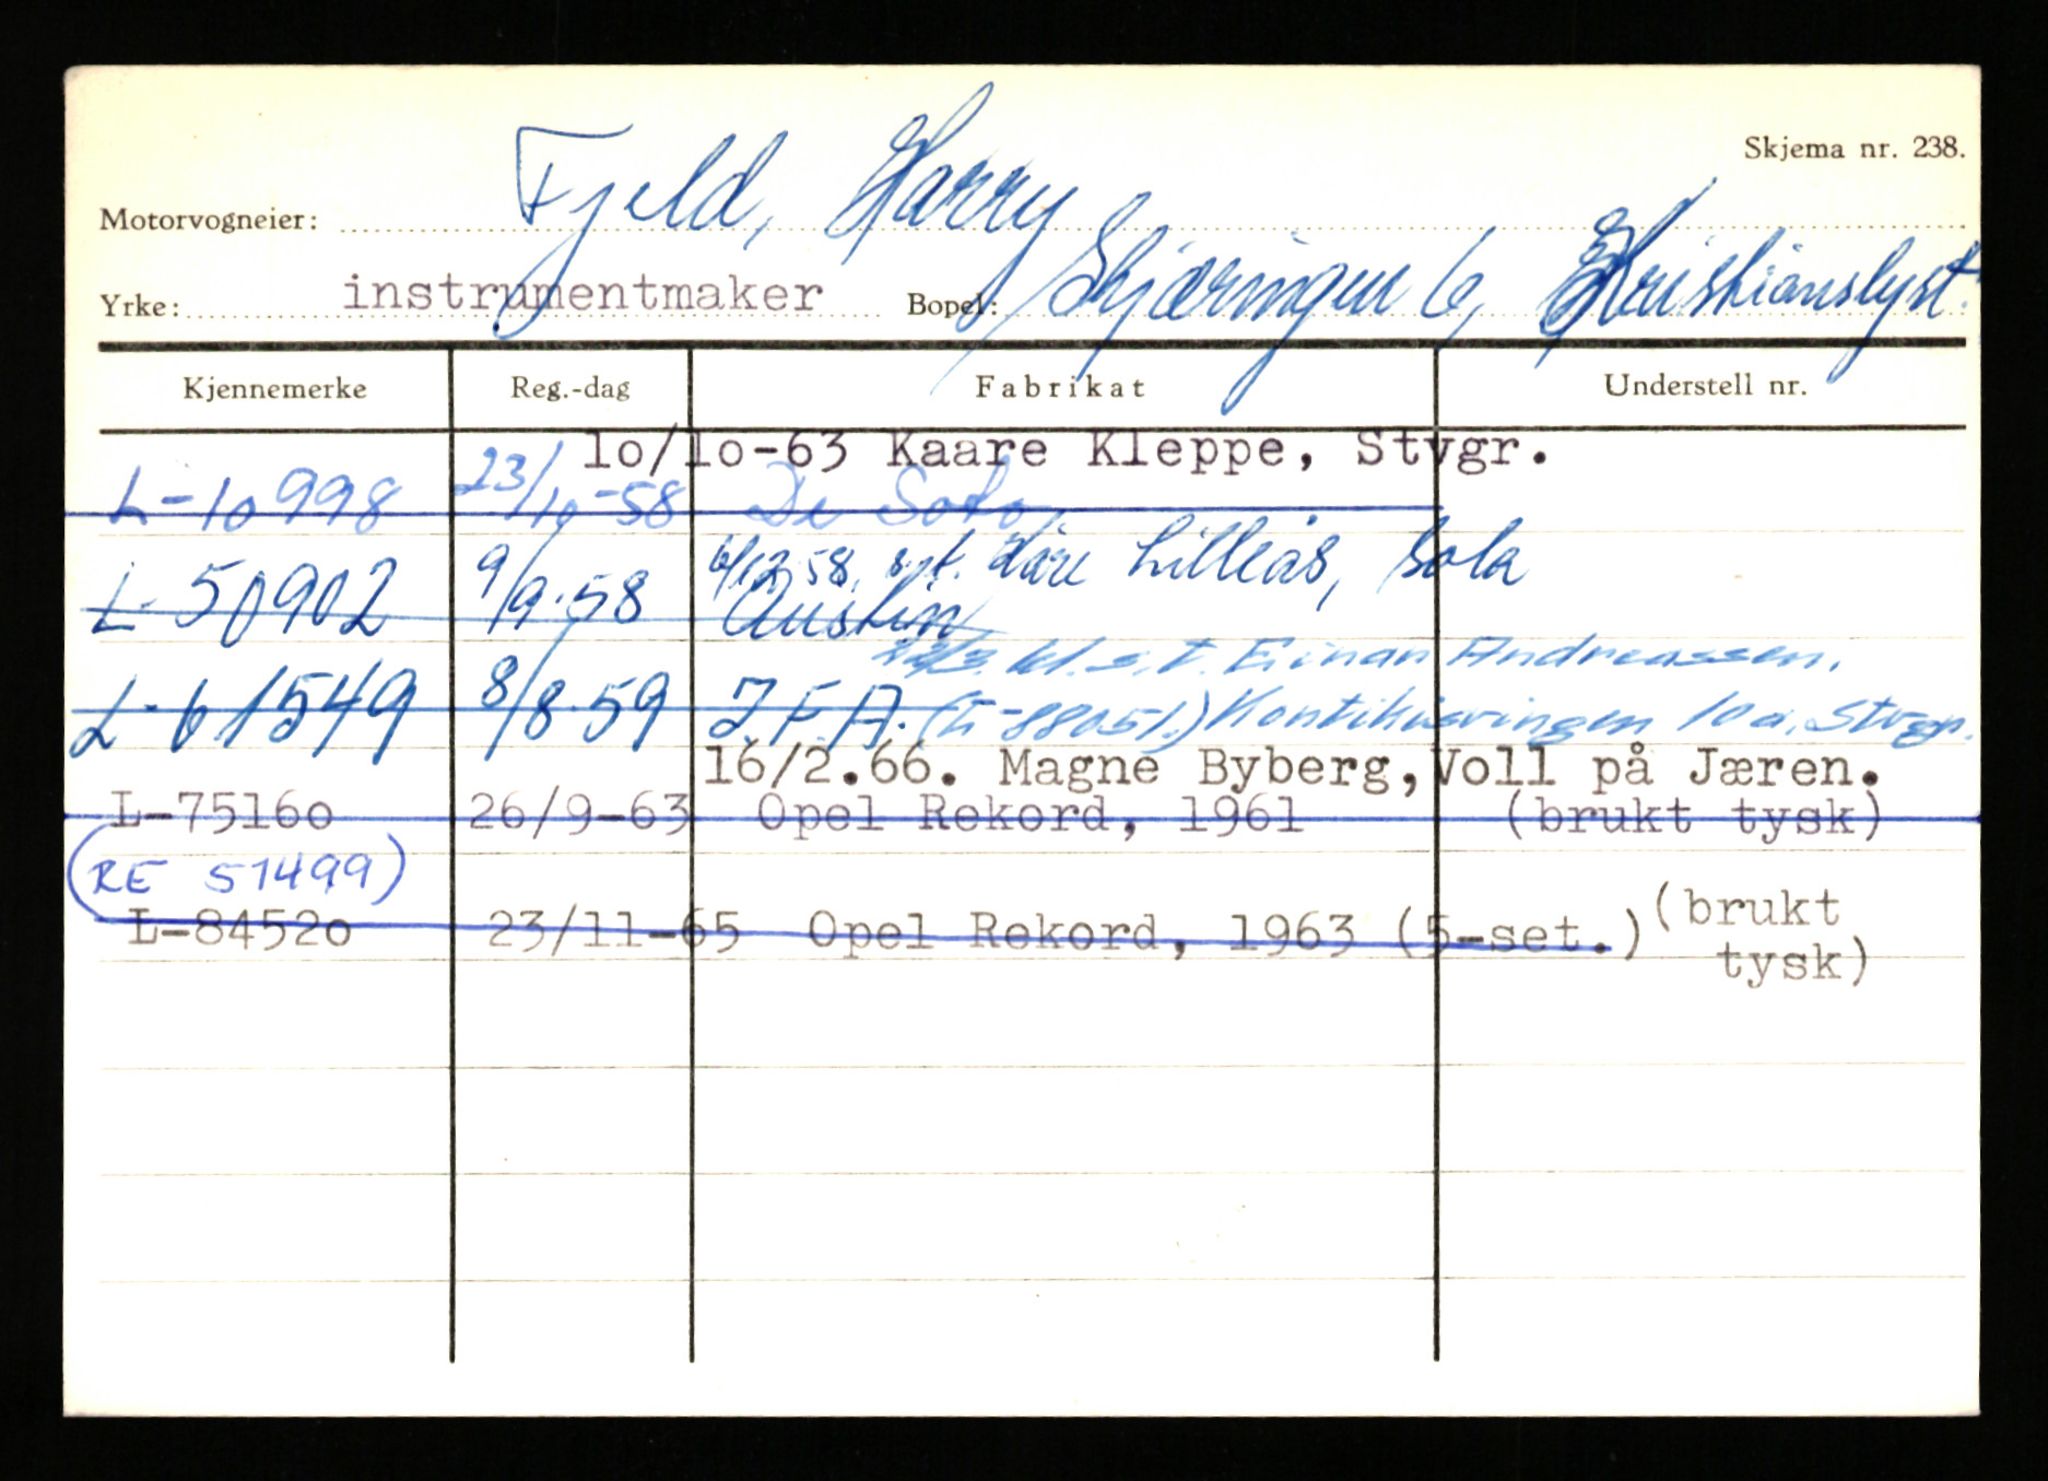 Skjema nr. 238.
Motorvogneier: Fjeld, Harry
Yrke: instrumentmaker Bopel: Skjæringen 6, Kristianslyst.
Kjennemerke Reg.-dag Fabrikat Understell nr.
10/10-63 Kaare Kleppe, Stvgr.
L-10998 23/10-58 De Soto
6/12 58, s.t. Kåre Lilleås, Sola
L-50902 9/9-58 Austin
kl. s.t. Einar Andreassen,
L-61549 8/8-59 I.F.A. (L-88051.) Kontikisvingen 10a, Stvgr.
16/2.66. Magne Byberg, Voll på Jæren.
L-75160 26/9-63 Opel Rekord, 1961 (brukt tysk)
(RE 51499)
L-84520 23/11-65 Opel Rekord, 1963 (5-set.) (brukt
tysk)